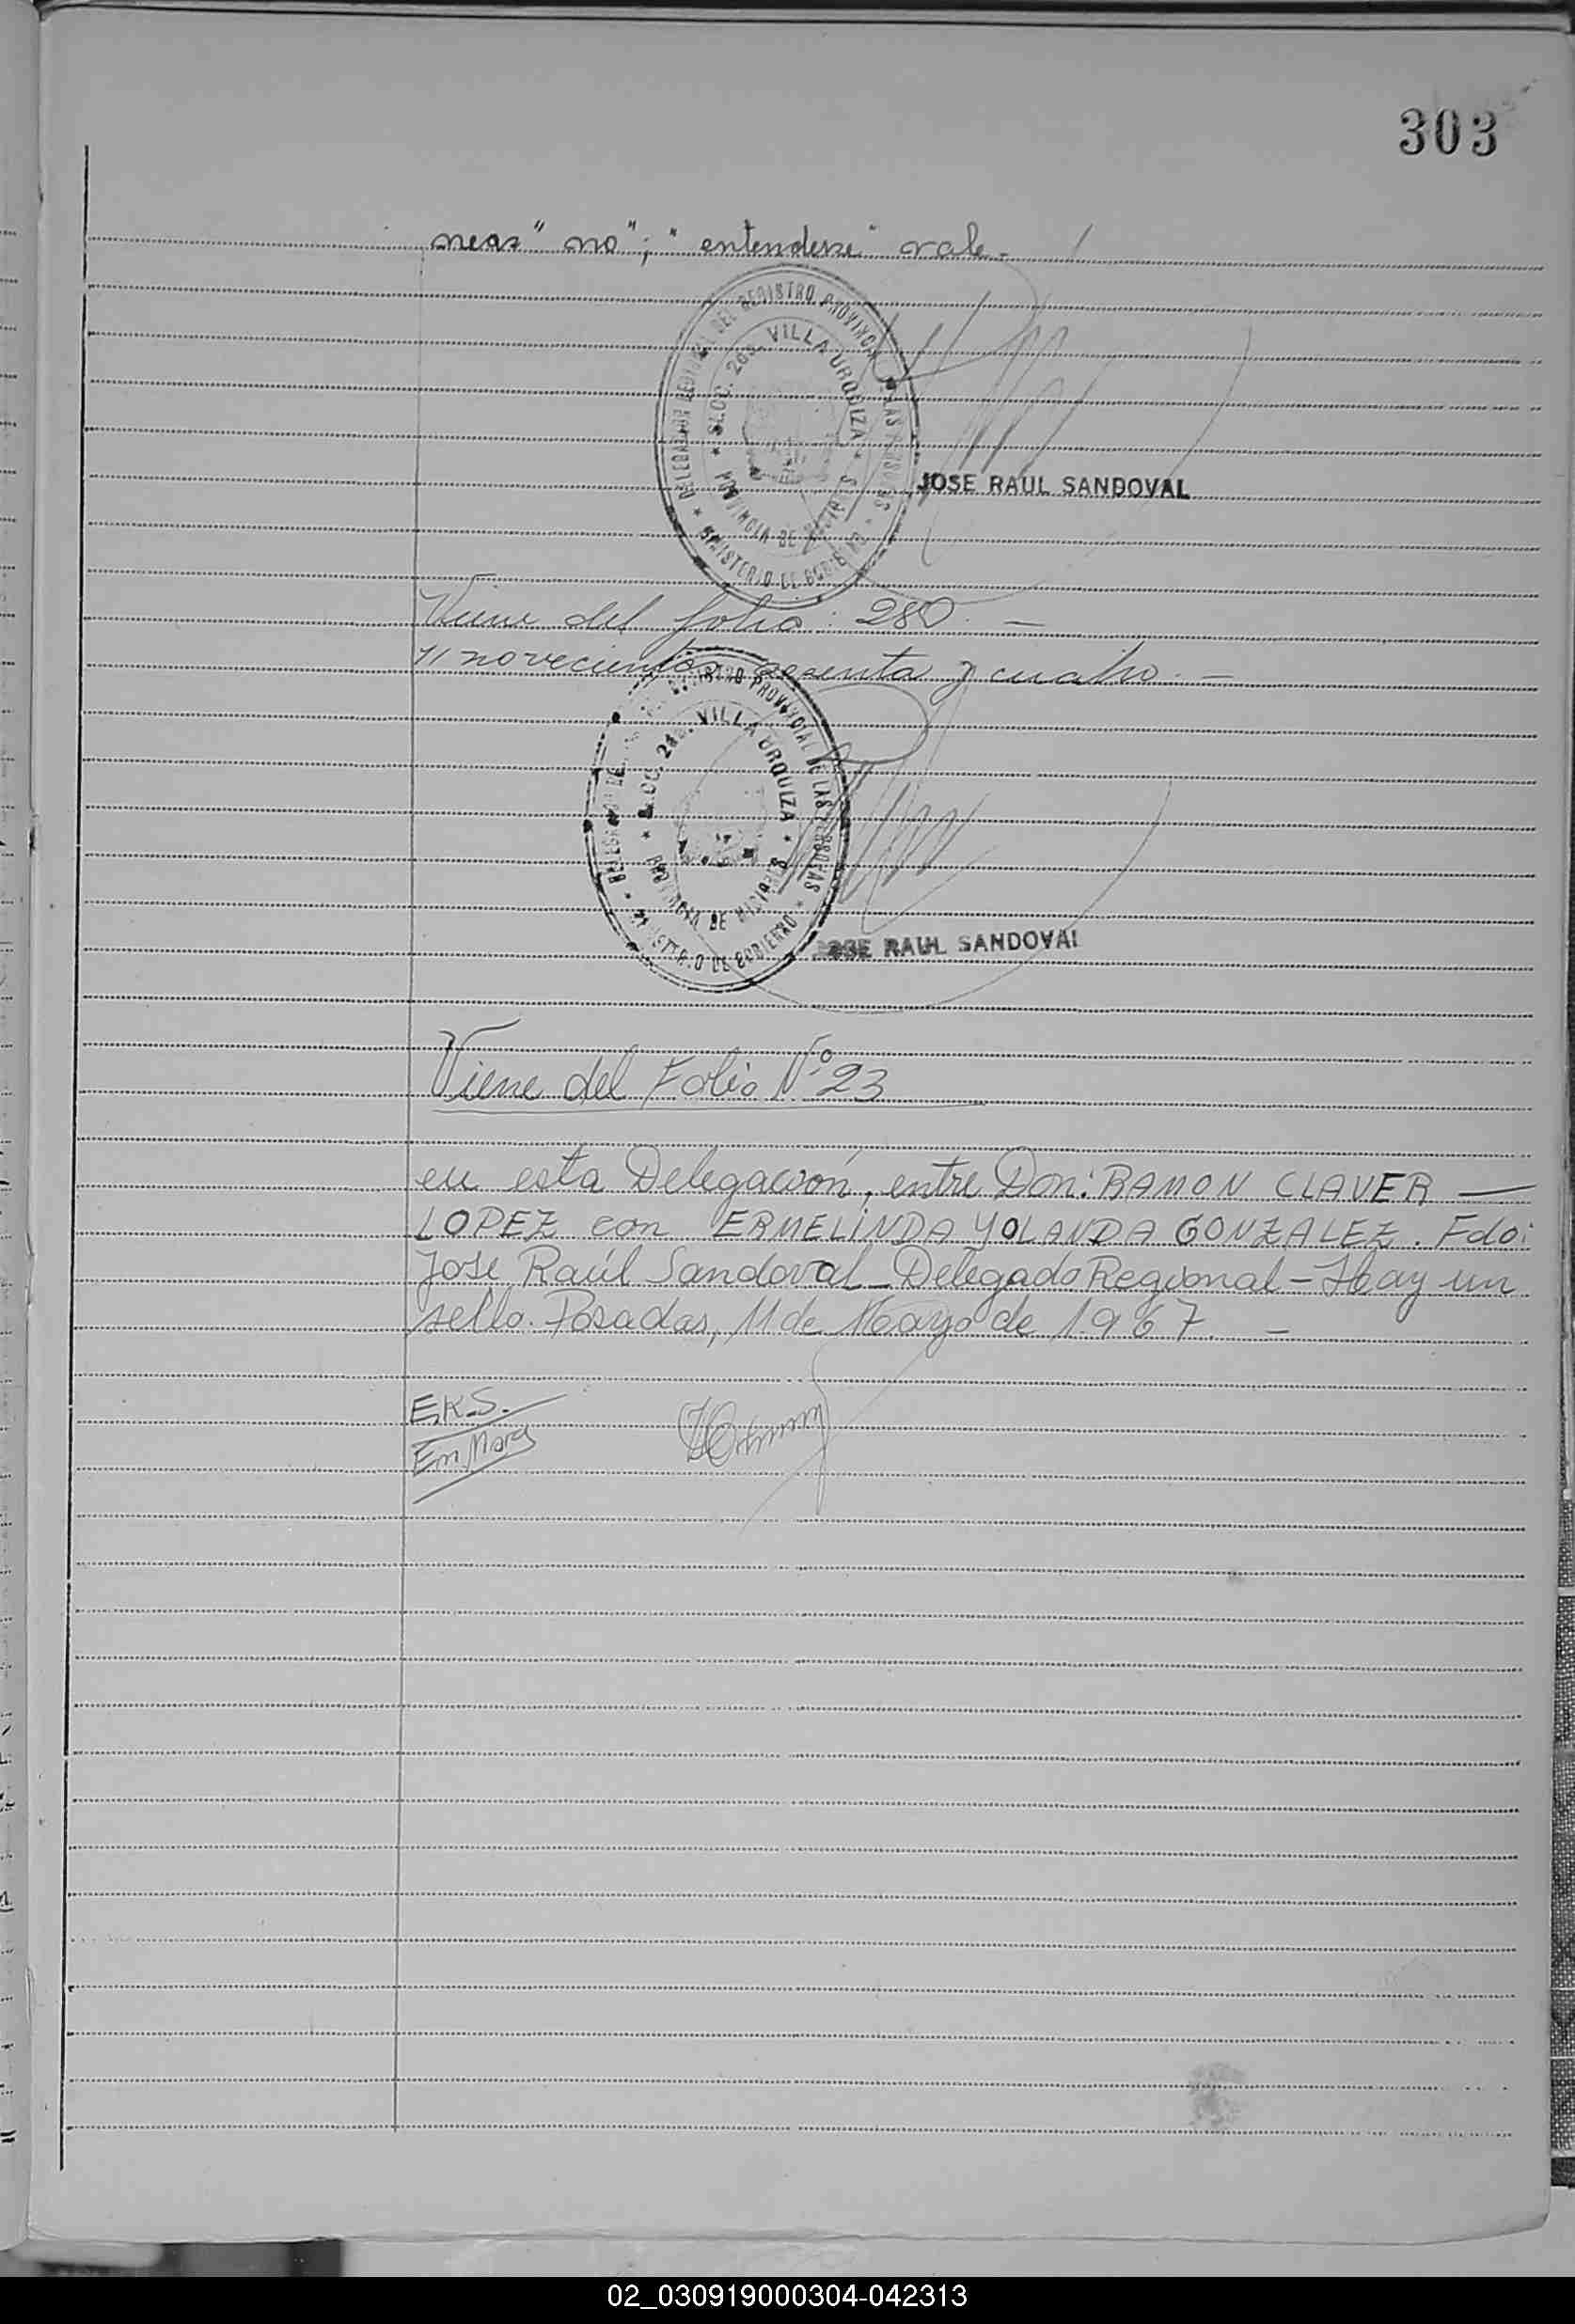 303
neas" no"; "entenderse" vale.-
DELEGACION REGIONAL DEL REGISTRO PROVINCIAL DE LAS PERSONAS
SECC. 2da. VILLA URQUIZA
PROVINCIA DE MISIONES
MINISTERIO DE GOBIERNO
JOSE RAUL SANDOVAL
Viene del folio: 280. -
novecientos sesenta y cuatro. -
REGISTRO PROVINCIAL DE LAS PERSONAS
SECC. 2da. VILLA URQUIZA
PROVINCIA DE MISIONES
MINISTERIO DE GOBIERNO
JOSE RAUL SANDOVAL
Viene del Folio Nº 23
en esta Delegación, entre Don: RAMON CLAVER —
LOPEZ con ERMELINDA YOLANDA GONZALEZ. Fdo:
José Raúl Sandoval - Delegado Regional - Hay un
sello. Posadas, 11 de Mayo de 1967. -
E.K.S.
Enc. Marg
02_030919000304-042313